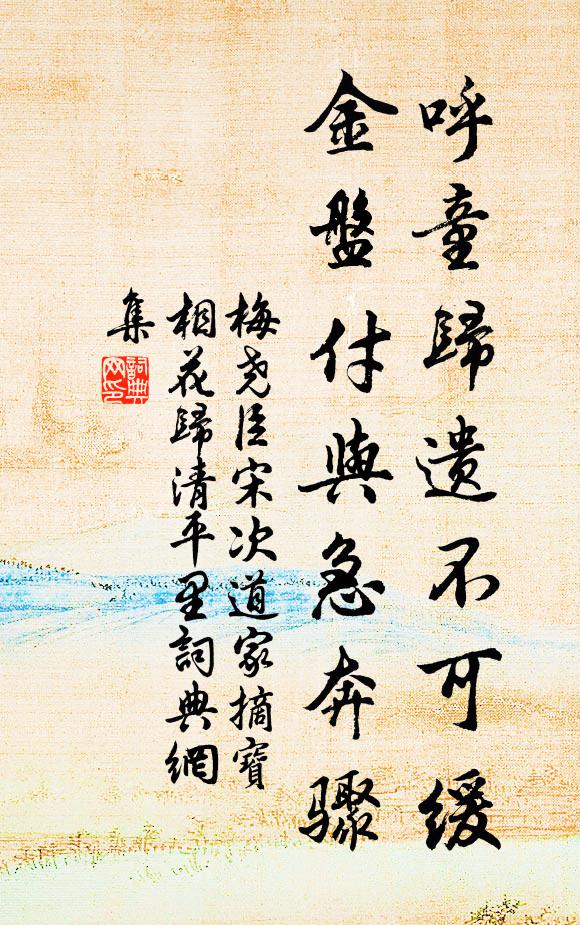 呼童歸遺不可緩
金盤付與急奔驟
梅堯臣宋次道家摘寶
相花歸清平里詞典網
集
詞典
网印